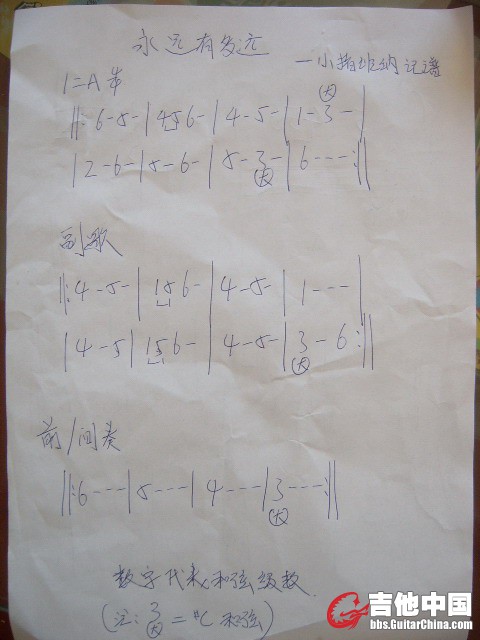 永远有多远
—小猪班纳记谱
1=A 4/4
‖: 6-5- | 456- | 4-5- | 1-3- |
| 2-6- | 5-6- | 5-3- | 6--- :‖
副歌
‖: 4-5- | 156- | 4-5- | 1--- |
| 4-5 | 156- | 4-5- | 3-6 :‖
前/间奏
‖: 6--- | 5---- | 4---- | 3---- :‖
数字代表和弦级数
(注: 3 = #C 和弦)
大
吉他中国
bbs.GuitarChina.com